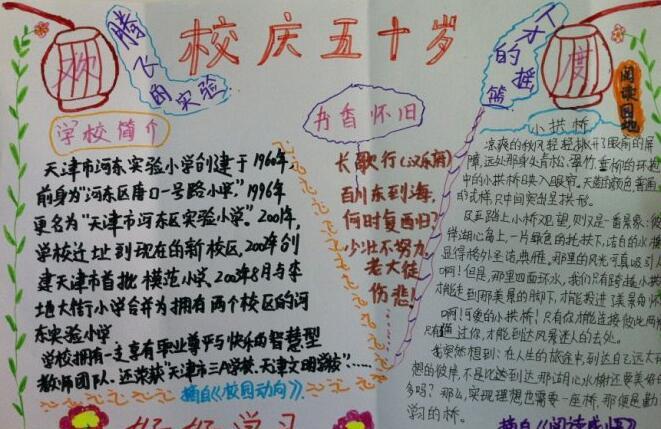 校庆五十岁
欢
度
腾飞
的实验
人才
的摇
篮
阅读园地
学校简介
天津市河东实验小学创建于1960年,
前身为"河东区唐口一号路小学",1996年
更名为"天津市河东区实验小学"。2001年,
学校迁址到现在的新校区,2002年创
建天津市首批模范小学、2008年8月与李
地大街小学合并为拥有两个校区的河
东实验小学
学校拥有一支享有职业尊严与快乐的智慧型
教师团队。还荣获"天津市三A学校、天津文明学校"……
摘自《校园动向》
书香怀旧
长歌行(汉乐府)
百川东到海,
何时复西归?
少壮不努力,
老大徒
伤悲!
小拱桥
凉爽的秋风轻轻掀开了眼前的屏
障,远处那身负青松、翠竹、垂柳的环抱
中的小拱桥映入眼帘。天蓝的颜色,普通
的式样,只中间突出呈拱形。
站在路上小桥观望,则又是一番景象:
伴湖心岛上,一片绿色的托拱下,洁白的水榭
显得格外圣洁、典雅,那里的风光可真吸引人
啊!但是,那里四面环水,我们只有跨越小拱
才能走到那美景的脚下,才能投进了美景的怀
啊!可爱的小拱桥!只有你才能连接彼此两岸
只有通过你,才能到达风景迷人的去处。
我突然想到:在人生的旅途中,到达自己远大
想的彼岸,不是比达到达那湖心水榭还要美好
多吗?那么,实现理想也需要一座桥,那便是勤
学习的桥。
摘自《阅读
好好学习